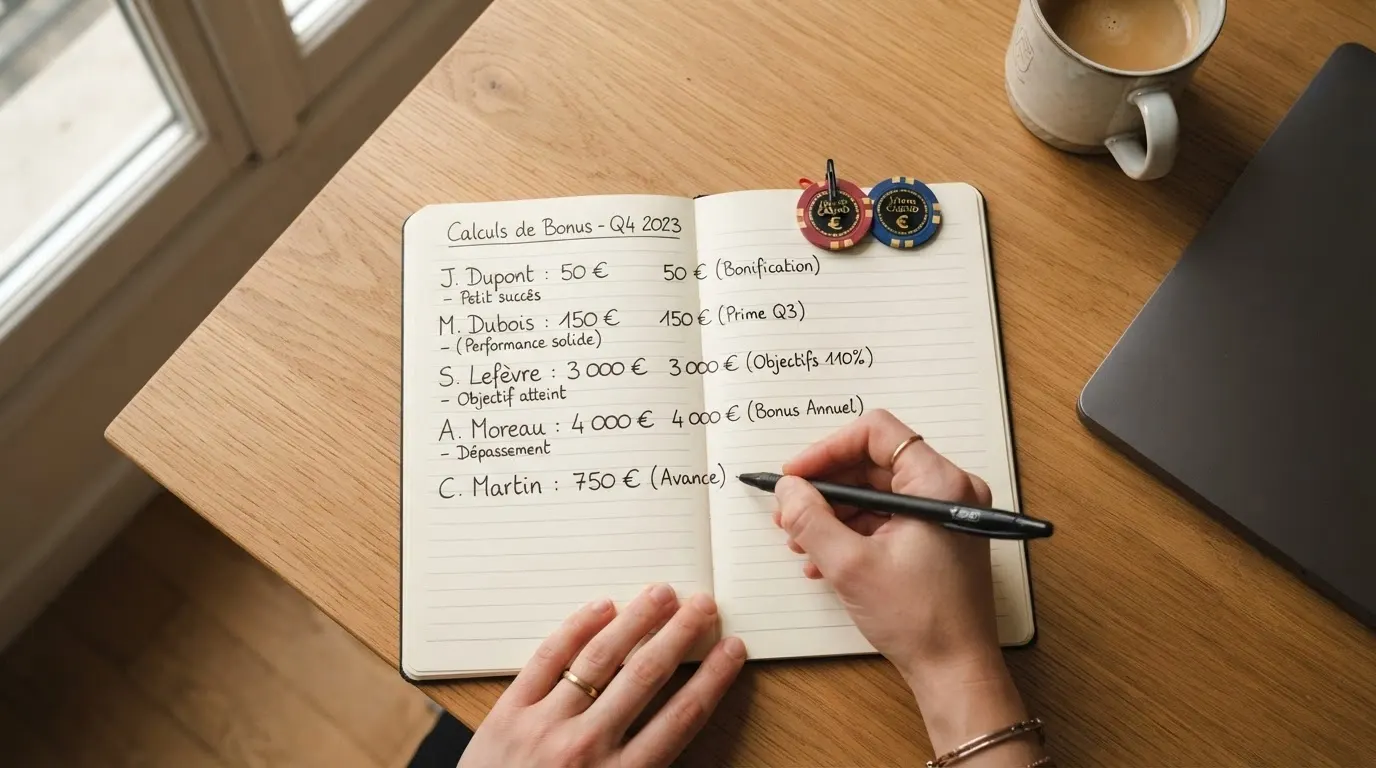 Calculs de Bonus - Q4 2023
J. Dupont : 50 € 50 € (Bonification)
- Petit succês
M. Dubois : 150 € 150 € (Prime Q3)
- (Performance solide)
S. Lefèvre : 3 000 € 3 000 € (Objectifs 110%)
- Objectif atteint
A. Moreau : 4 000 € 4 000 € (Bonus Annuel)
- Dépassement
C. Martin : 750 € (Avance)
€
€